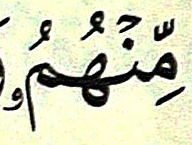 مِّنْهُمُ